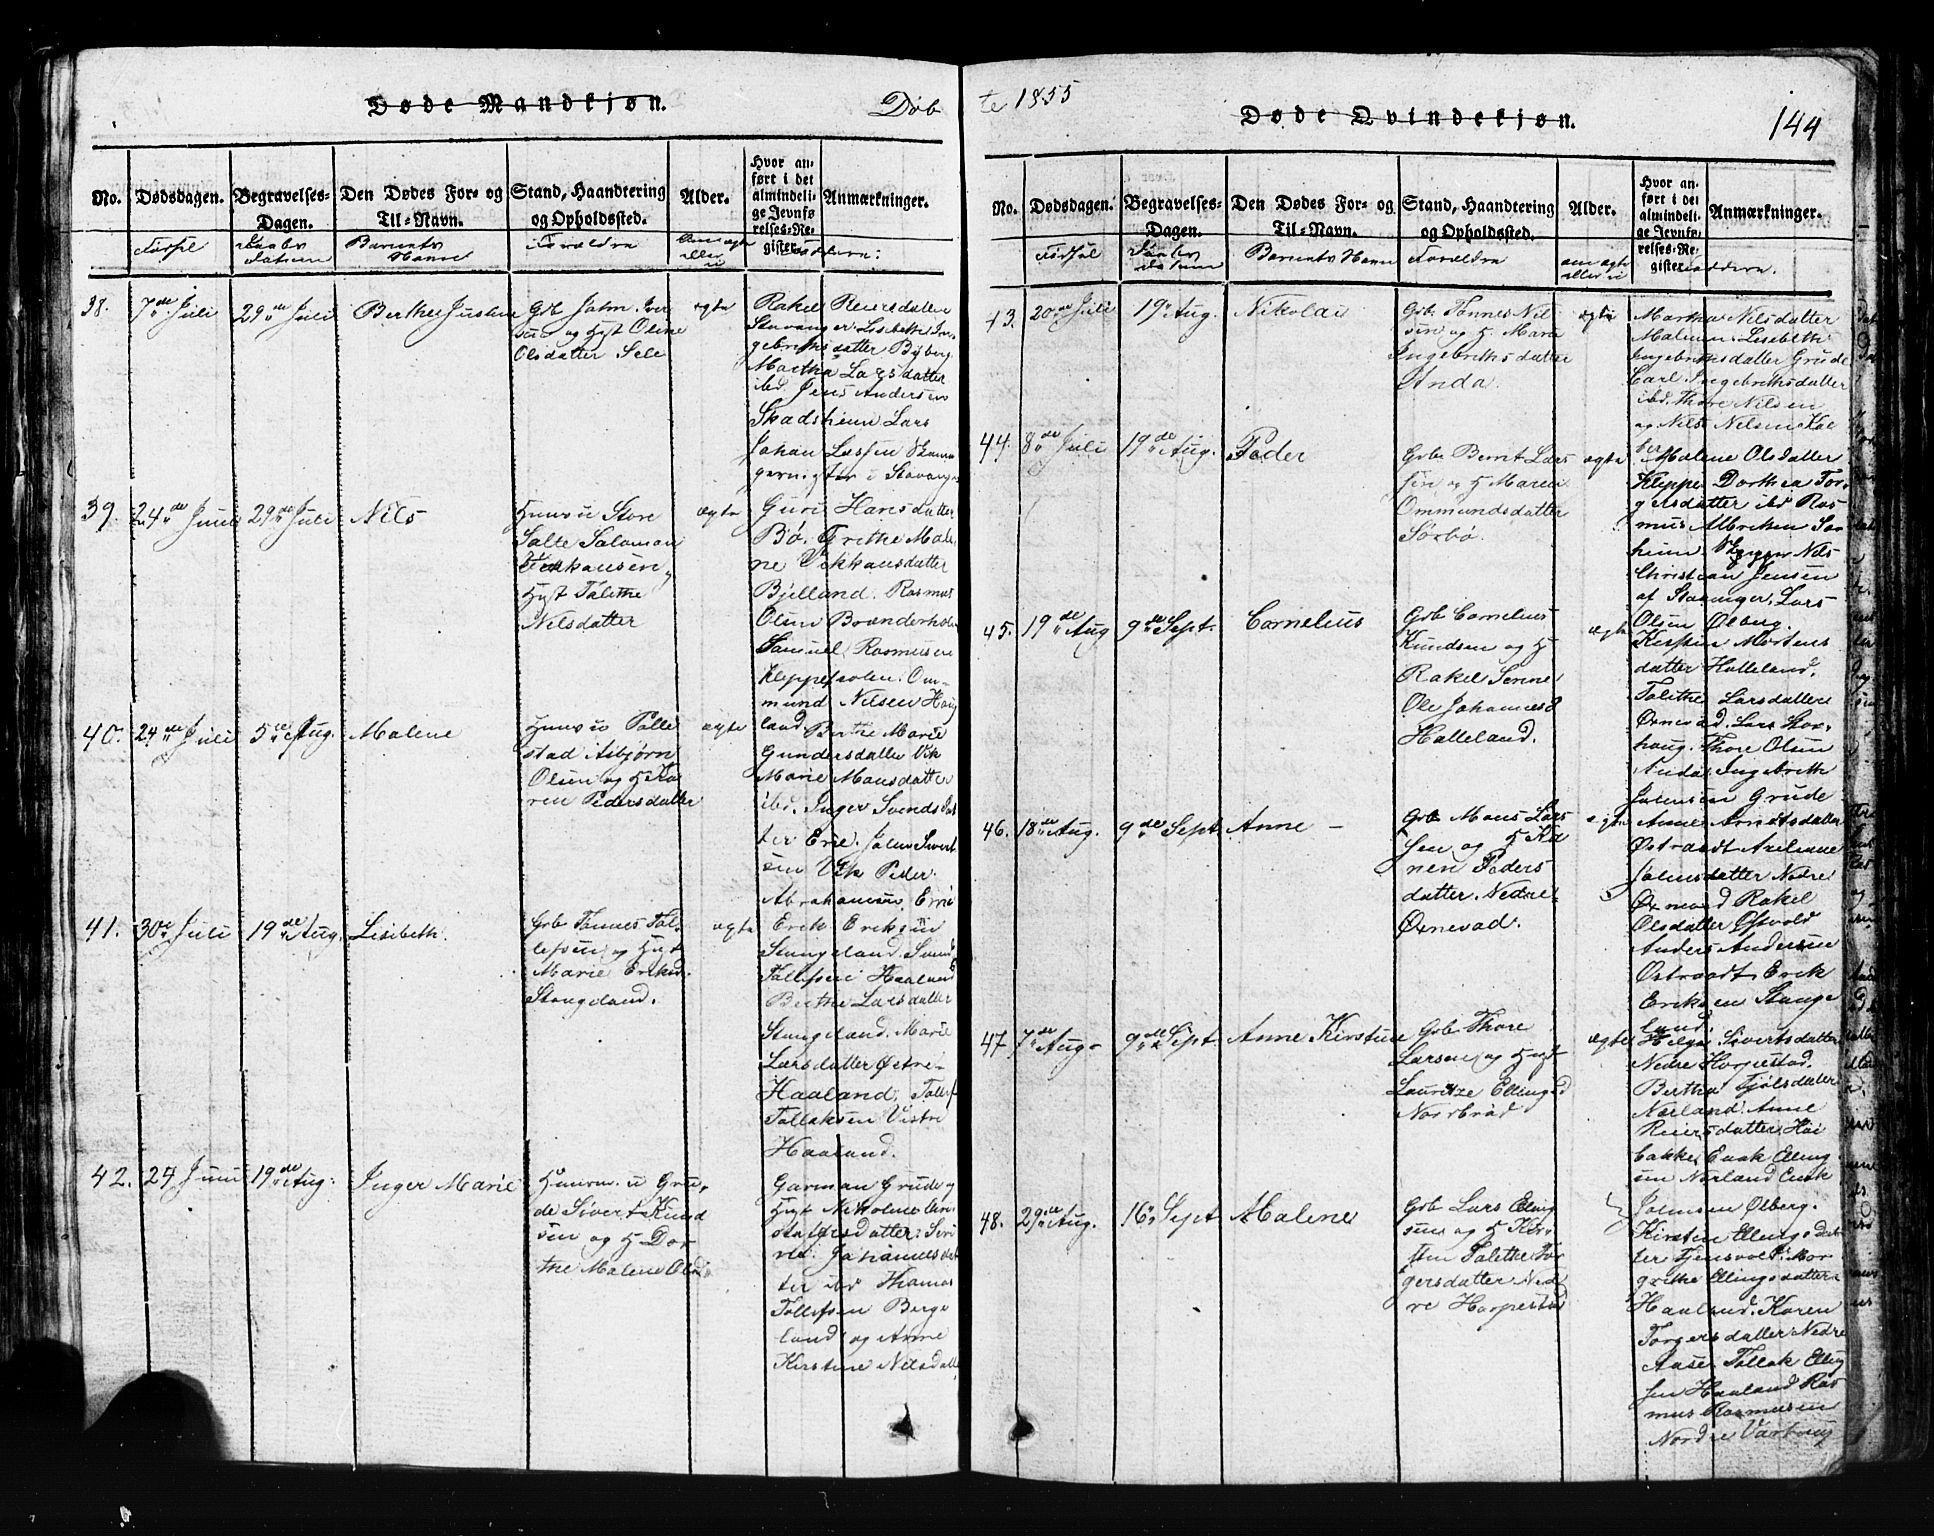 Døde Mandkjøn.
Døb
No.
Dødsdagen.
Begravelses-
Dagen.
Den Dødes For- og
Til-Navn.
Stand, Haandtering
og Opholdssted.
Alder.
Hvor an-
ført i det
almindeli-
ge Jevnfø
relses-Re-
gister.
Anmærkninger.
Barnets
Navn
38.
7de Juli
29de Juli
Berthe Justine
Gb John Iver
sen og Hust Oline
Olsdatter Sele
ægte
Rakel Reiersdatter
Stavanger Lisebeth In-
gebrethsdatter Byberg
Martha Larsdatter
ibd. Jens Andersen
Skadsheim Lars
Johan Larsen
i Stavanger
39.
24de Juni
29de Juli
Nils
Huusm u Store
Salte Salomon
Hust Talethe
Nilsdatter
ægte
Guri Hansdatter
Bø. Grethe Male
ne
Bjelland. Rasmus
Olsen
Samuel Rasmusen
Om-
mund Nilsen Haug
land
40.
24de Juli
5te Aug.
Malene
Huusm u Tølle
stad Asbjørn
Olsen og H Ka
ren Pedersdatter
ægte
Berthe Marie
Gundersdatter Vik
Marie Monsdatter
ibd. Inger Svends dat
ter Erie. John Sivert
sen Vik Peder
Abrahamsen
41.
30te Juli
19de Aug.
Lisebeth.
Gb Tønnes Tol-
lefsen og Hust
Marie Eriksd.
Stangeland.
ægte
Erik Eriksen
Stangeland. Svend
Tollefsen Haaland
Berthe Larsdatter
Stangeland. Marie
Larsdatter Østre
Haaland, Tollef
Tollaksen Vestre
Haaland.
42.
24 Juni
19de Aug:
Inger Marie
Huusm. u Gru-
de Sivert Knud
sen og H Dor
the Malene Olsd.
Garman Grude og
Hust Nikoline Chri
stofersdatter: Seri
ne Johannesdat
ter ibd Thomas
Tollefsen Berge
land og Anne
Kirstine Nilsdatter
te 1855
Døde Qvindekjøn.
144
No.
Dødsdagen.
Begravelses-
Dagen.
Den Dødes For- og
Til-Navn.
Stand, Haandtering
og Opholdssted.
Alder.
Hvor an-
ført i det
almindeli-
ge Jevnfø-
relses-Re-
gister.
Anmærkninger.
Barnets Navn
Foreldre
om ægte
eller ei
43.
20de Juli
19de Aug.
Nikolai
Gb Tønnes Nil
sen og H Maria
Ingebrethsdatter
Anda.
ægte
Martha Nilsdatter
Malmin. Lisebeth
Ingebrethsdatter Grude
Carl Ingebrethsdatter
ibd. Thore Nilsen
og Nils Nilsen
44.
8de Juli
19de Aug.
Peder
Gb Bernt Lars
sen og H Maren
Ommundsdatter
Sørbø.
ægte
Malene Olsdatter
Kleppe Dorthea Tor-
gersdatter ibd Ras
mus
Nils
Christian Jensen
af Stavanger, Lars
Olsen Ølberg.
45.
19de Aug
9de Sept.
Cornelius
Gb Cornelius
Knudsen og H
Rakel Serine
Ole Johannesd
Halleland.
ægte
Kirsten Mortens
datter Halleland.
Talethe Larsdatter
Øxnevad. Lars Stor-
haug. Thore Olsen
Anda, Ingebreth
Johnsen Grude
46.
18de Aug.
9de Sept
Anne —
Gb Mons Lars
sen og H Ka
ren Peders
datter. Nedre
Øxnevad.
ægte
Anne Arntsdatter
Østraadt Axeliane
Johnsdatter Nedre
Øxnevad Rakel
Olsdatter Østvold
Anders Andersen
Østraadt Erik
Eriksen Stange
land.
47
7de Aug-
9de Sept.
Anne Kirstine
Gb Thore
Larsen og Hust
Lauritze Ellingsd
Norbrød
ægte
Helga Sivertsdatter
Nedre Horpestad.
Bertha Tjølsdatter
Norland Anne
Reiersdatter, Høi
bakke, Enok Elling
sen Norland Enok
Johnsen Ølberg.
48.
29de Aug.
16de Sept
Malene
Gb Lars Elling
sen og H Kir-
sten Talethe Tor
gersdatter. Ned
re Horpestad
Kirsten Ellingsdat
ter Tjensvold. Mar
grethe Ellingsdatter
Haaland. Karen
Torgersdatter Nedre
Aase. Tollak Elling
sen Haaland Ras
mus Rasmusen
Nordre Varhaug